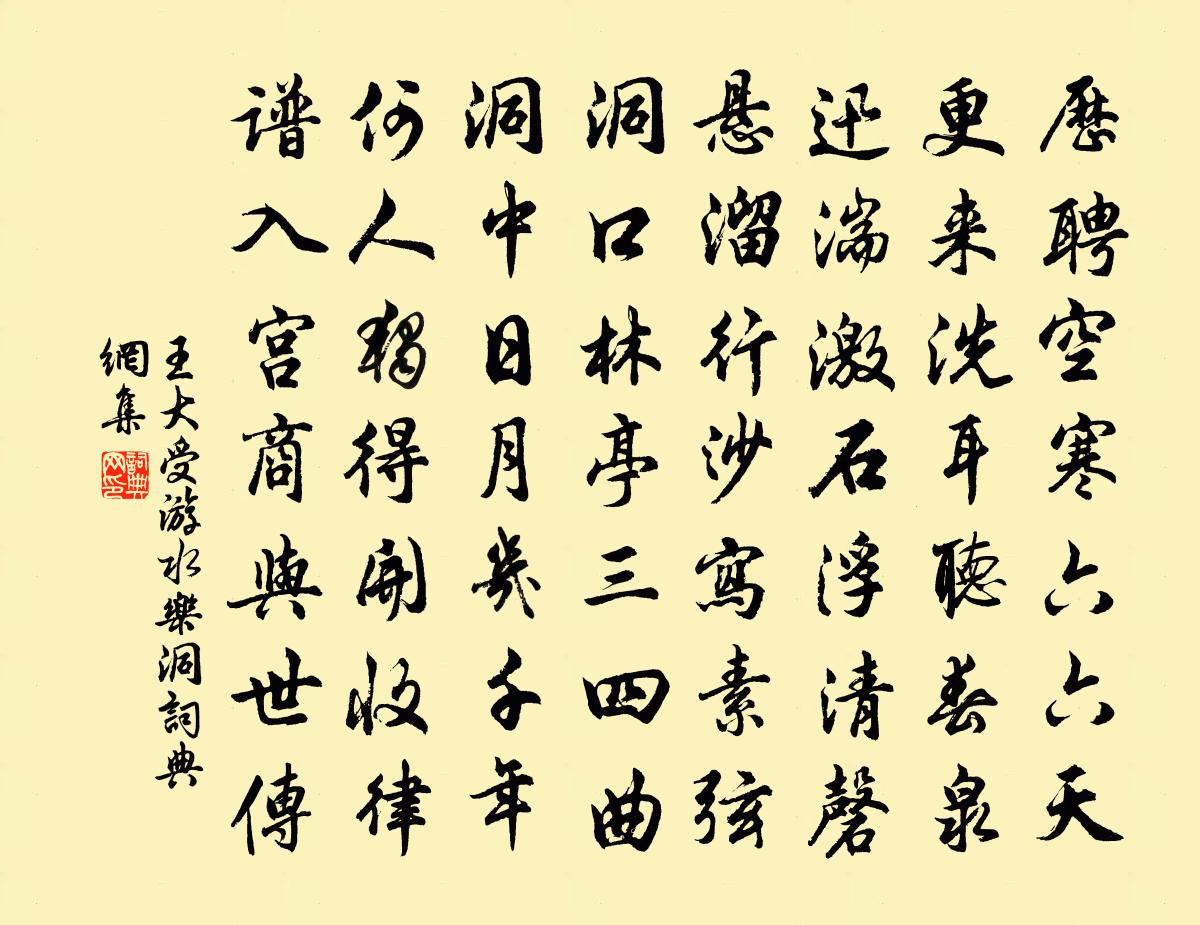 歷聘空寒六六天
更来洗耳聽春泉
迅湍激石浮清磬
悬溜行沙寫素弦
洞口林亭三四曲
洞中日月幾千年
何人獨得開收律
谱入宫商與世傳
王大受游水樂洞詞典
網集
詞典
网印